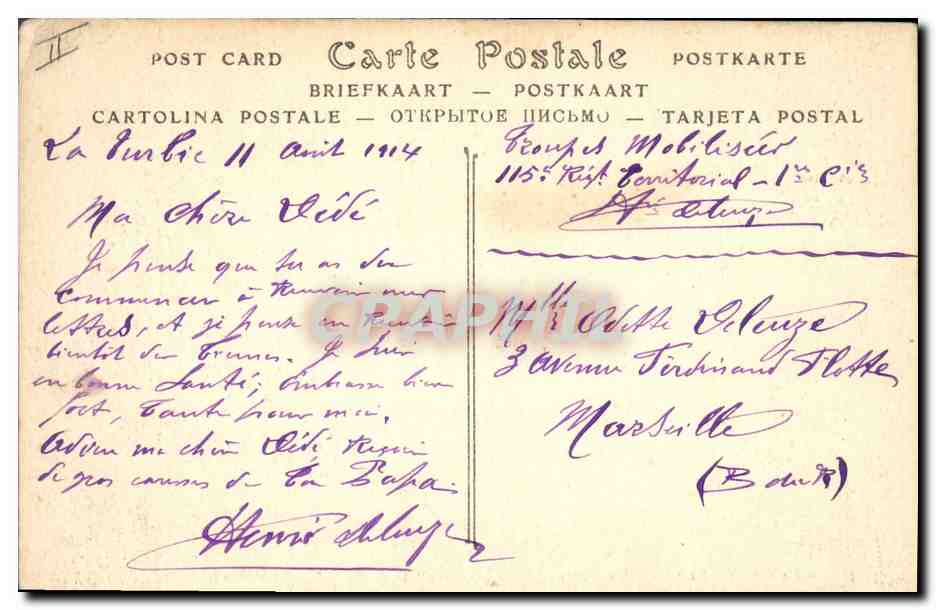 II
POST CARD Carte Postale POSTKARTE
BRIEFKAART — POSTKAART
CARTOLINA POSTALE — ОТКРЫТОЕ ПИСЬМО — TARJETA POSTAL
La Turbie 11 Août 1914
Ma chère Dédé
Je pense que tu as du
commencer à recevoir mes
lettres, et je pense en recevoir
bientôt des tiennes. Je suis
en bonne santé, embrasse bien
fort, Tante pour moi.
Adieu ma chère Dédé Reçois
de gros caresses de Ton Papa
Henri Deleuze
Troupes Mobilisées
115e Régt Territorial - 1re Cie
Hri Deleuze
Melle Odette Deleuze
3 avenue Ferdinand Flotte
Marseille
(B du R)
CPAPHIL